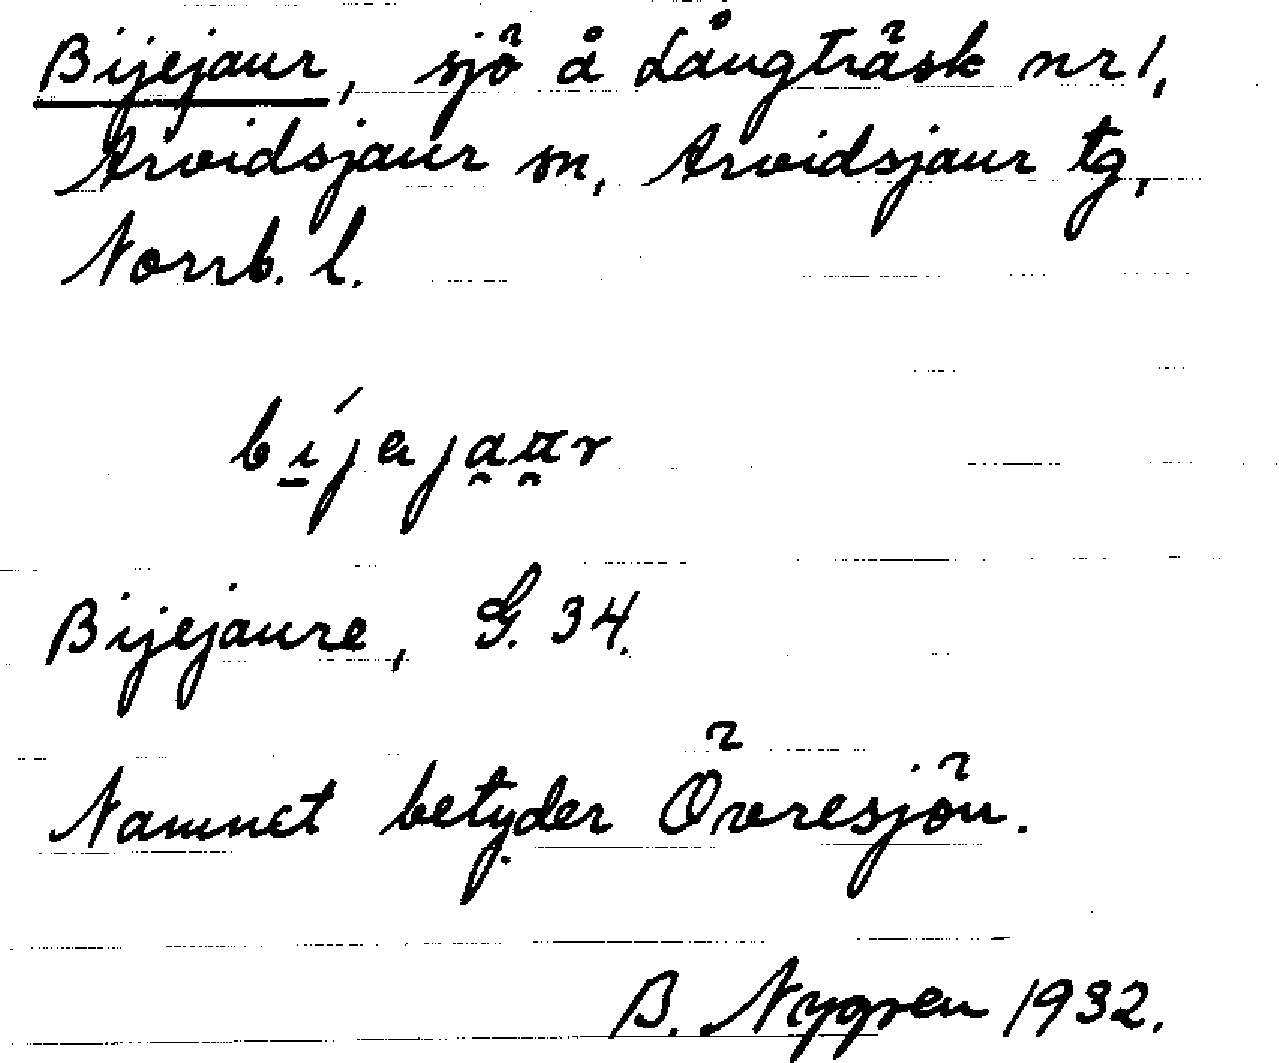 Bijejaur, sjö å Långträsk nr 1,
Arvidsjaur sn, Arvidsjaur tg,
Norrb. l.
bí̱jeja̯a̯r
Bijejaure, G. 34.
Namnet betyder Övresjön.
B. Nygren 1932.